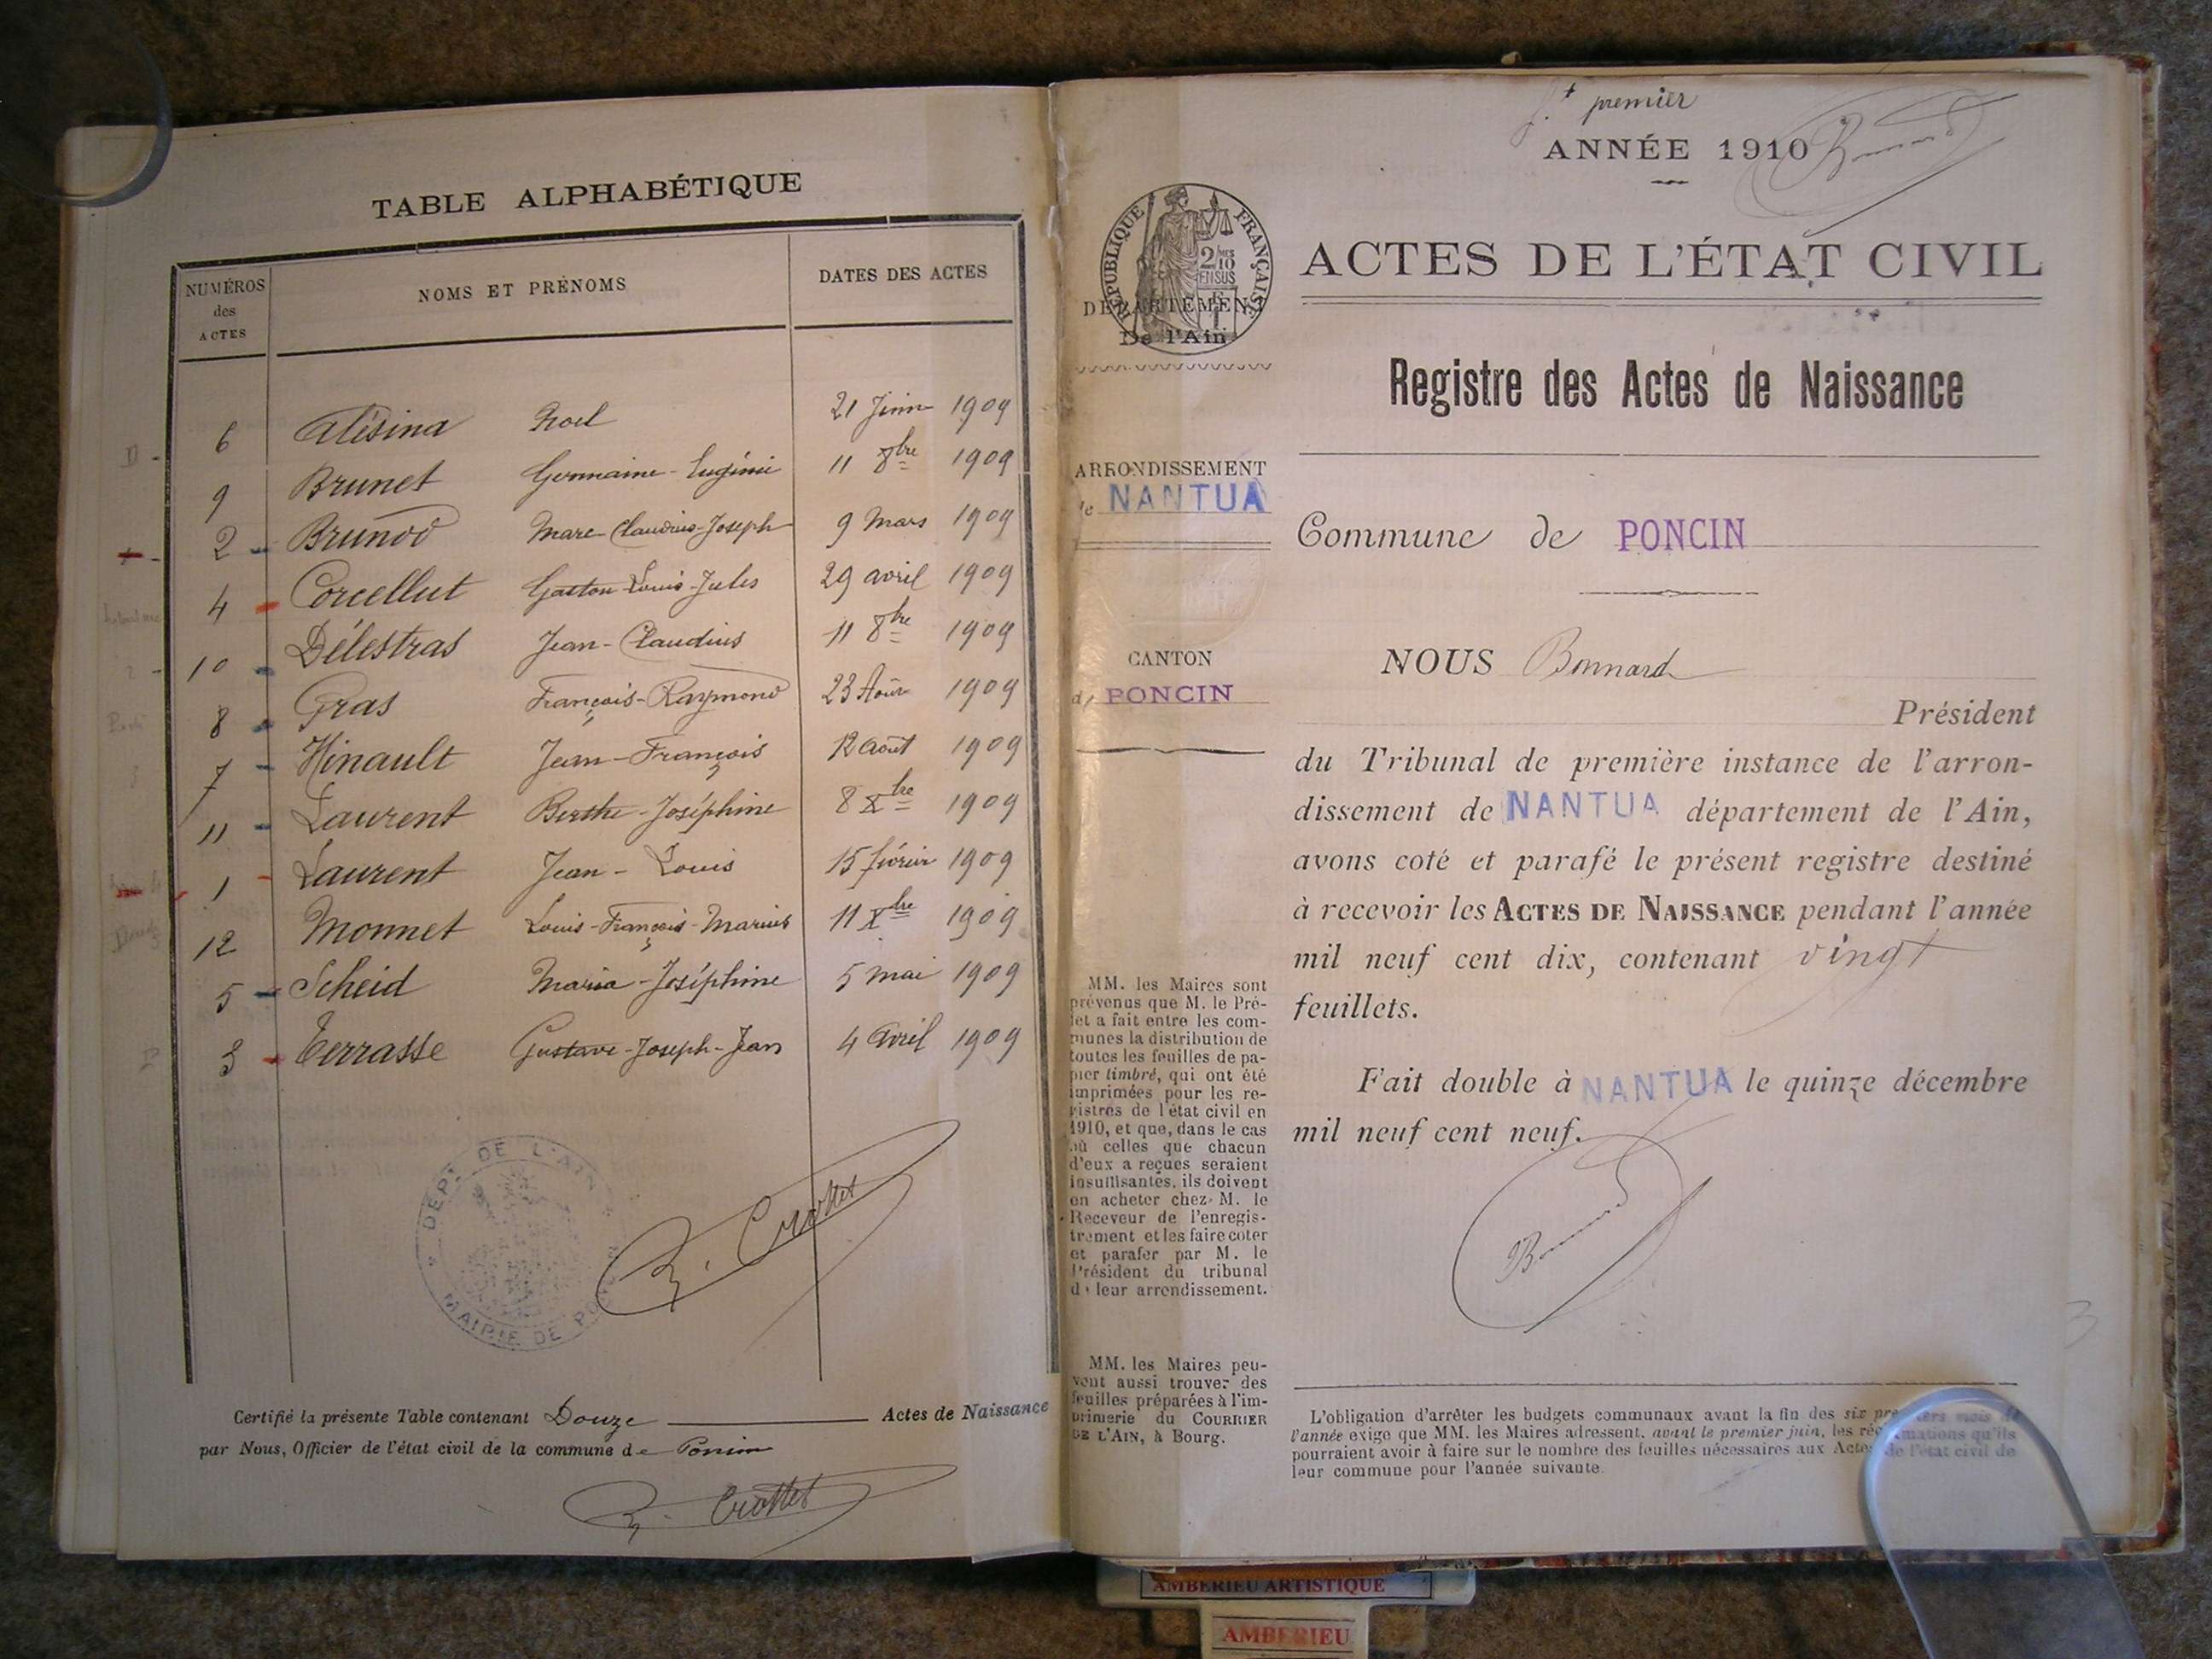 TABLE ALPHABÉTIQUE
NUMÉROS des ACTES NOMS ET PRÉNOMS DATES DES ACTES
6 Alésina Noel 21 Juin 1909
9 Brunet Germaine-Eugénie 11 8bre 1909
2 Brunod Marc-Claudius-Joseph 9 Mars 1909
4 Corcellut Gaston-Louis-Jules 29 avril 1909
10 Délestras Jean-Claudius 11 8bre 1909
8 Gras François-Raymond 23 Août 1909
7 Hinault Jean-François 12 août 1909
11 Laurent Berthe-Joséphine 8 Xbre 1909
1 Laurent Jean-Louis 15 février 1909
12 Monnet Louis-François-Marius 11 Xbre 1909
5 Scheid Maria-Joséphine 5 mai 1909
3 Terrasse Gustave-Joseph-Jean 4 Avril 1909
DÉPT DE L'AIN
MAIRIE DE PONCIN
Crottet
Certifié la présente Table contenant Douze Actes de Naissance
par Nous, Officier de l'état civil de la commune de Poncin
Crottet
premier
ANNÉE 1910
RÉPUBLIQUE FRANÇAISE
2/10 EN SUS
DÉPARTEMENT
De l'Ain
ACTES DE L'ÉTAT CIVIL
Registre des Actes de Naissance
ARRONDISSEMENT
de NANTUA
Commune de PONCIN
CANTON
de PONCIN
NOUS Bonnard
Président
du Tribunal de première instance de l'arron-
dissement de NANTUA département de l'Ain,
avons coté et parafé le présent registre destiné
à recevoir les ACTES DE NAISSANCE pendant l'année
mil neuf cent dix, contenant vingt
feuillets.
Fait double à NANTUA le quinze décembre
mil neuf cent neuf.
MM. les Maires sont
prévenus que M. le Pré-
fet a fait entre les com-
munes la distribution de
toutes les feuilles de pa-
pier timbré, qui ont été
imprimées pour les re-
gistres de l'état civil en
1910, et que, dans le cas
où celles que chacun
d'eux a reçues seraient
insuffisantes, ils doivent
en acheter chez M. le
Receveur de l'enregis-
trement et les faire coter
et parafer par M. le
Président du tribunal
de leur arrondissement.
MM. les Maires peu-
vent aussi trouver des
feuilles préparées à l'im-
primerie du COURRIER
DE L'AIN, à Bourg.
L'obligation d'arrêter les budgets communaux avant la fin des six premiers mois de
l'année exige que MM. les Maires adressent, avant le premier juin, les réclamations qu'ils
pourraient avoir à faire sur le nombre des feuilles nécessaires aux Actes de l'état civil de
leur commune pour l'année suivante.
AMBERIEU ARTISTIQUE
AMBERIEU